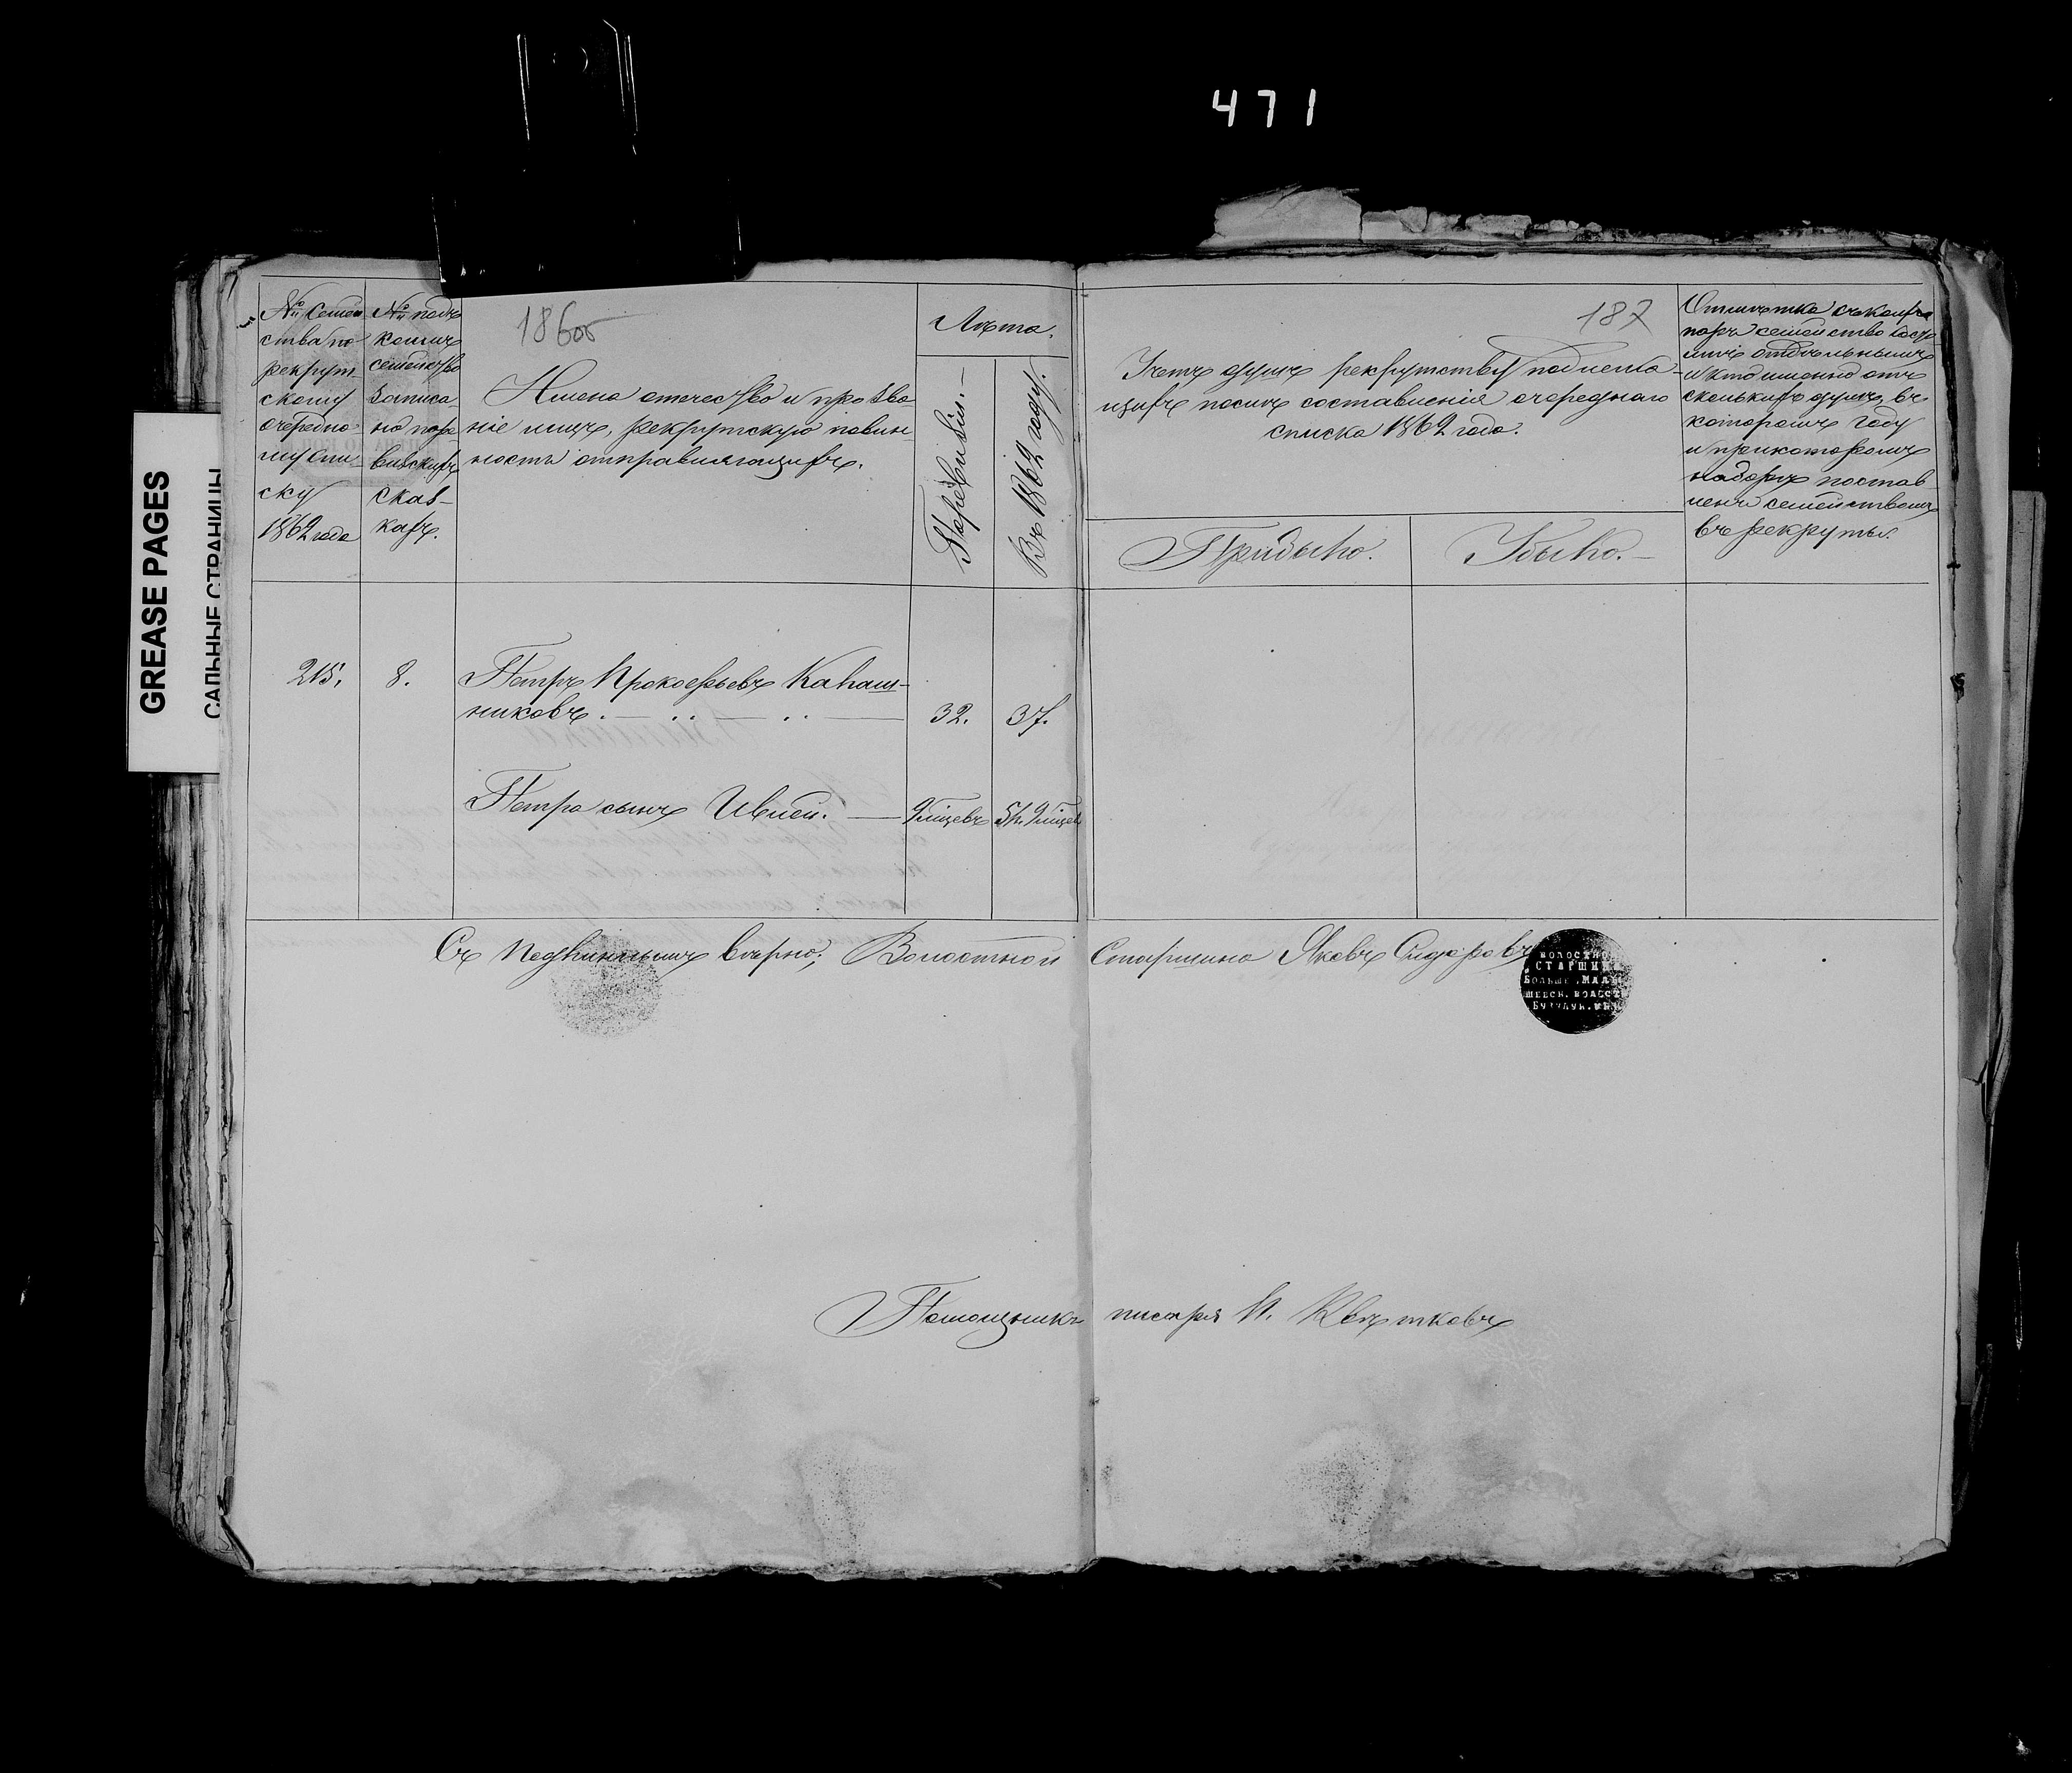 471
GREASE PAGES
САЛЬНЫЕ СТРАНИЦЫ
187
№ Семей
ства по
рекрут-
скому
очередно
му спи-
ску
1862 года
№ подъ
коимъ
семейство
записа-
но по ре
визскихъ
сказ-
кахъ.
Имена отечество и прозва-
ніе лицъ, рекрутскую повин
ность отправляющихъ.
Лѣта.
По ревизіи.
Въ 1862 году.
Учетъ душъ рекрутству подлежа-
щихъ послѣ составленія очереднаго
списка 1862 года.
Прибыло.
Убыло.
Отмѣтка съ какихъ
поръ семейство состо
итъ отдѣльнымъ
и кто именно отъ
сколькихъ душъ, въ
которомъ году
и при которомъ
наборѣ постав
ленъ семействомъ
въ рекруты.
215.
8.
Петръ Прокофьевъ Калаш-
никовъ.
32.
37.
Петра сынъ Ивлей.
9 мѣсяцевъ
5 л. 9 мѣсяцев
Съ подлиннымъ вѣрно; Волостной Старшина Яковъ Сидоровъ
ВОЛОСТНО
СТАРШИН
БОЛЬШЕ МАЛЫ
ШЕВСК. ВОЛОСТ
БУЗУЛУК.
Помощникъ писаря И.